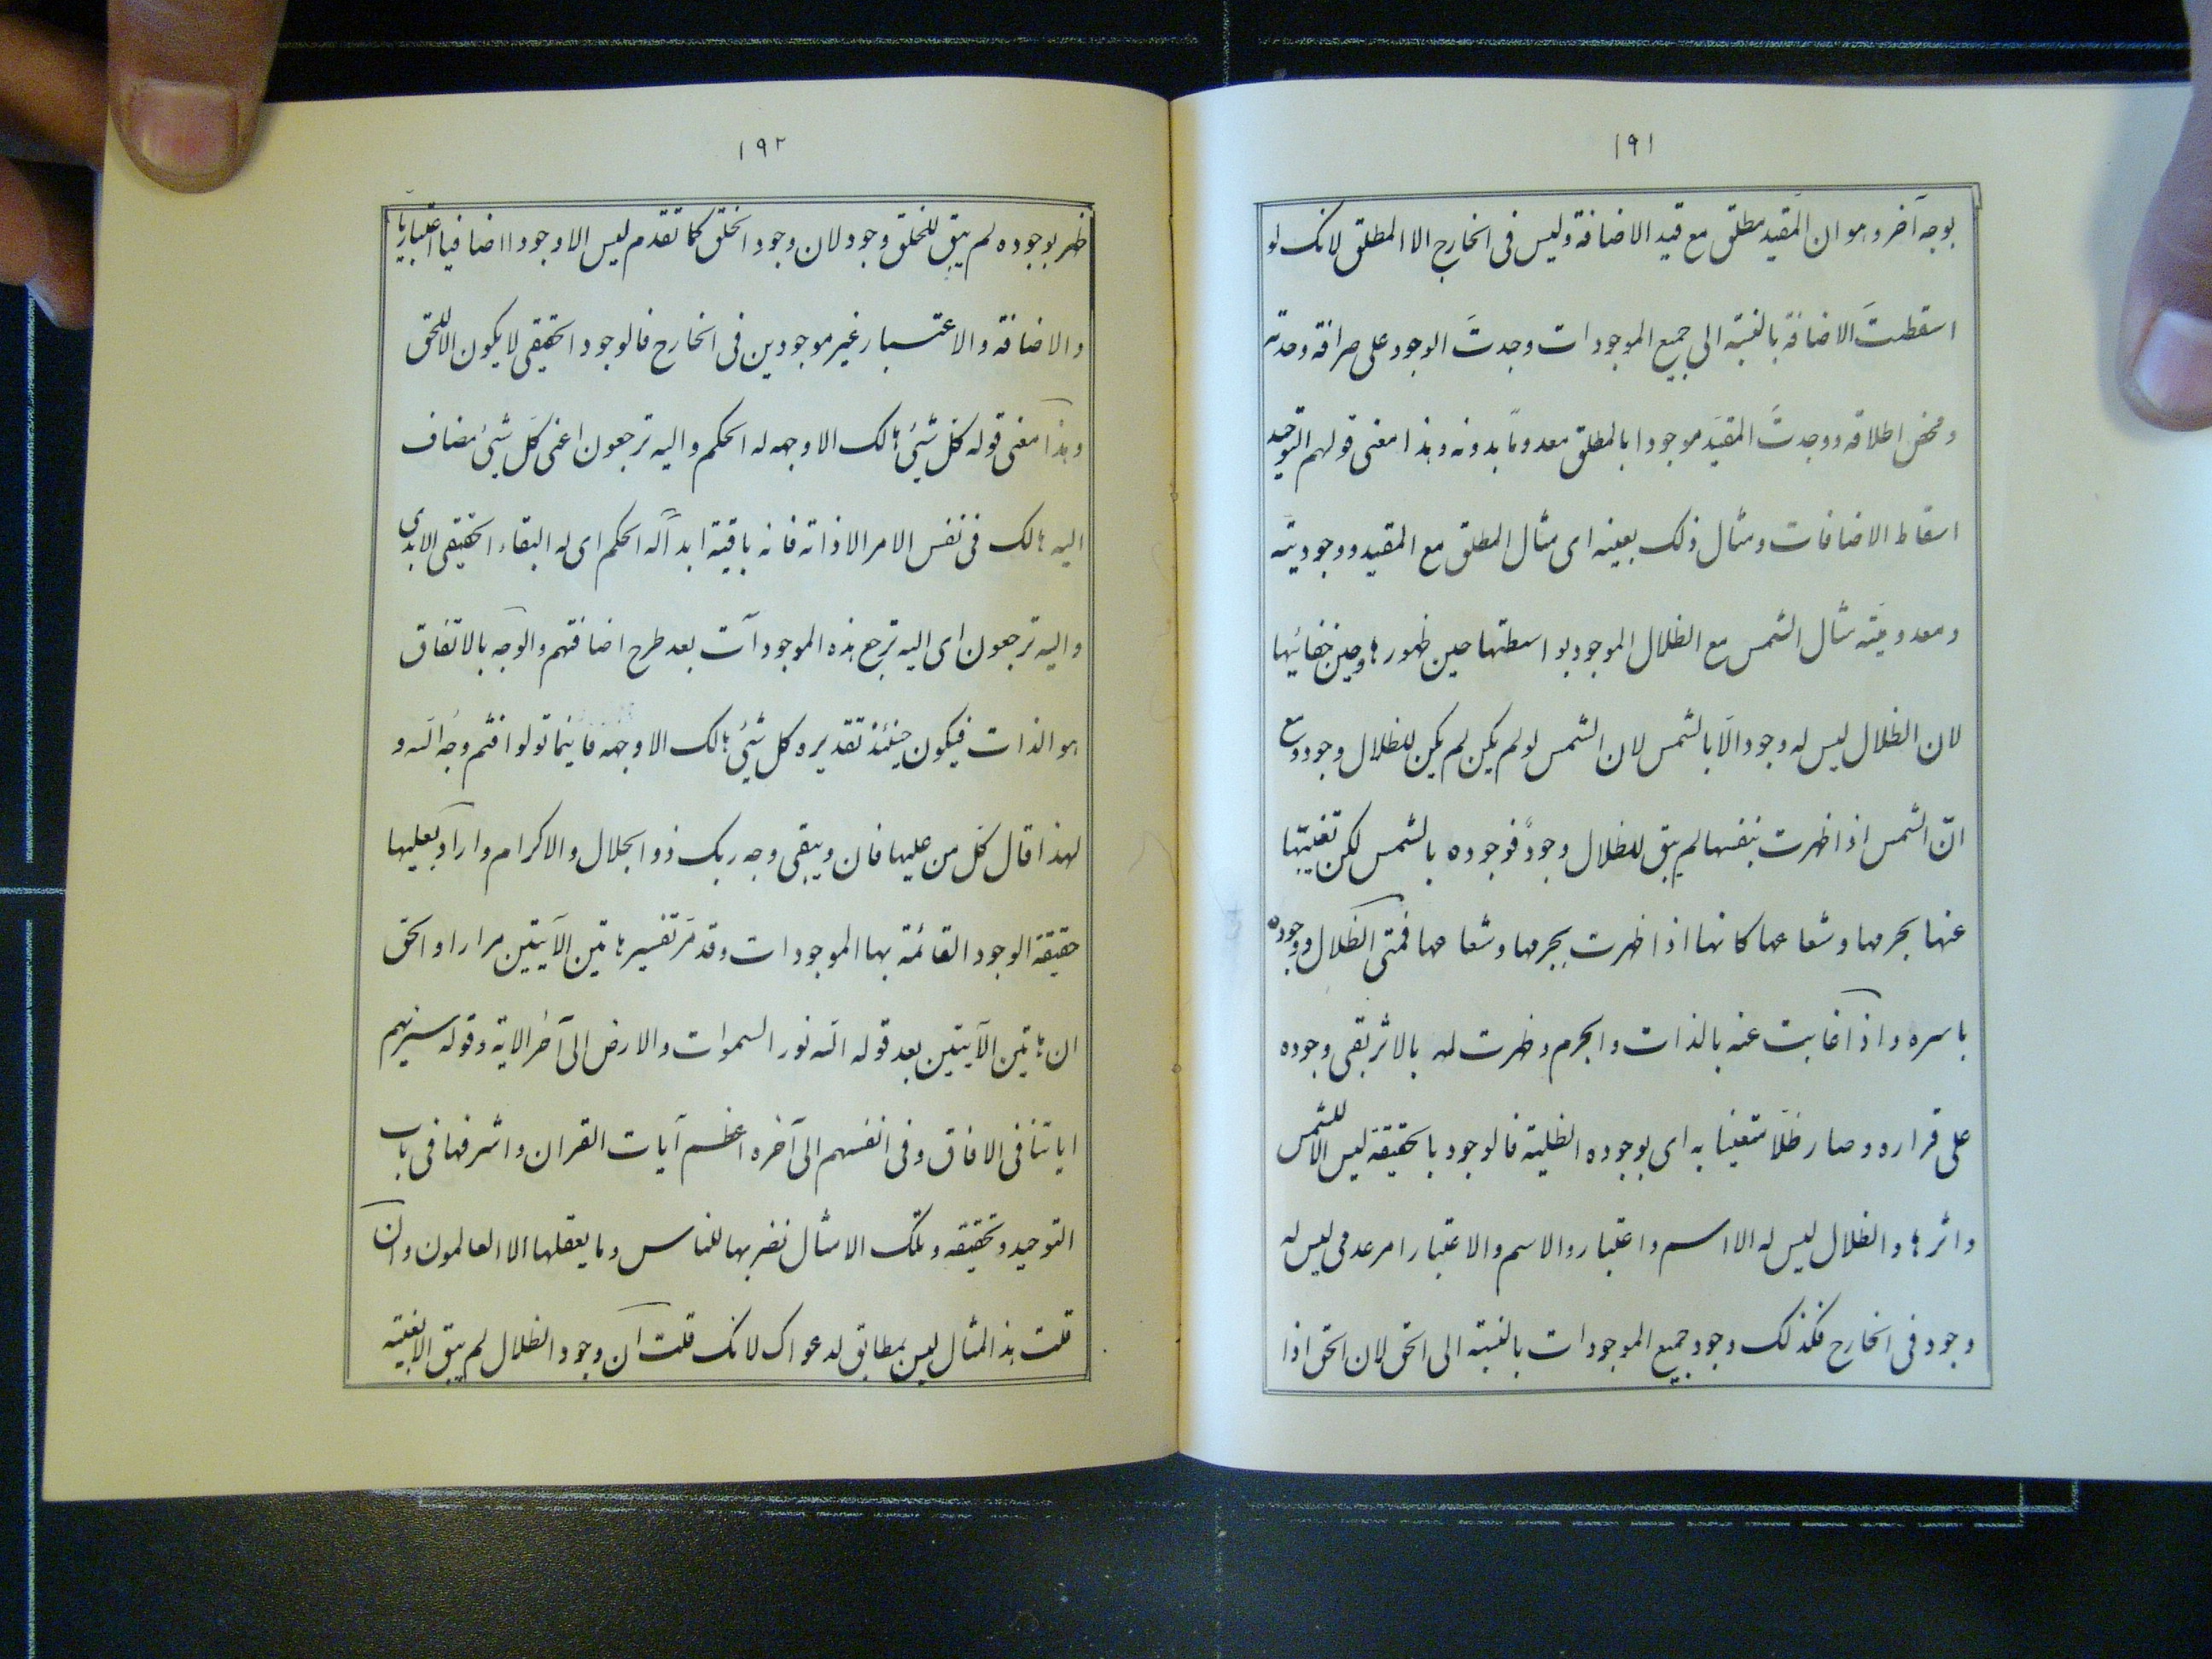 ١٩١
بوجه آخر وهو ان المقيد مطلق مع قيد الاضافة وليس فى الخارج الا المطلق لانك لو
اسقطتَ الاضافة بالنسبة الى جميع الموجودات وجدتَ الوجود على صرافة وحدته
ومحض اطلاقه ووجدتَ المقيّد موجودا بالمطلق معدومًا بدونه وهذا معنى قولهم التوحيد
اسقاط الاضافات ومثال ذلك بعينه اى مثال المطلق مع المقيد ووجوديته
ومعدوميّته مثال الشمس مع الظلال الموجود بواسطتها حين ظهورها وحين خفائها
لان الظلال ليس له وجود الّا بالشمس لان الشمس لو لم يكن لم يكن للظلال وجود ومع
انّ الشمس اذا ظهرت بنفسها لم يبق للظلال وجودٌ فوجوده بالشمس لكن تغيبتها
عنها بجرمها وشعاعها كانها اذا ظهرت بجرمها وشعاعها فمتى الظلال ووجوده
باسره واذا غابت عنه بالذات والجرم وظهرت له بالاثر بقى وجوده
على قراره وصار ظلّا متعينا به اى بوجوده الظلية فالوجود بالحقيقة ليس الا للشمس
واثرها والظلال ليس له الا اسم واعتبار والاسم والاعتبار امر عدمى ليس له
وجود فى الخارج فكذلك وجود جميع الموجودات بالنسبة الى الحق لان الحق اذا
١٩٢
ظهر بوجوده لم يبق للخلق وجود لان وجود الخلق كما تقدم ليس الا وجودا اضافيا اعتباريا
والاضافة والاعتبار غير موجودين فى الخارج فالوجود الحقيقى لا يكون الا للحق
وهذا معنى قوله كل شىء هالك الا وجهه له الحكم واليه ترجعون اعنى كل شىء مضاف
اليه هالك فى نفس الامر الا ذاته فانه باقية ابداً له الحكم اى له البقاء الحقيقى الابدى
واليه ترجعون اى اليه ترجع هذه الموجودات بعد طرح اضافتهم والوجه بالاتفاق
هو الذات فيكون حينئذ تقديره كل شىء هالك الا وجهه فاينما تولوا فثم وجه الله و
لهذا قال كل من عليها فان ويبقى وجه ربك ذو الجلال والاكرام واراد بعليها
حقيقة الوجود القائمة بها الموجودات وقد مرّ تفسير هاتين الآيتين مرارا والحق
ان هاتين الآيتين بعد قوله الله نور السموات والارض الى آخر الاية وقوله سنريهم
اياتنا فى الافاق وفى انفسهم الى آخره اعظم آيات القران واشرفها فى باب
التوحيد وتحقيقه وتلك الامثال نضربها للناس وما يعقلها الا العالمون وان
قلت هذا المثال ليس بمطابق لدعواك لانك قلت ان وجود الظلال لم يبق الا بغيبته